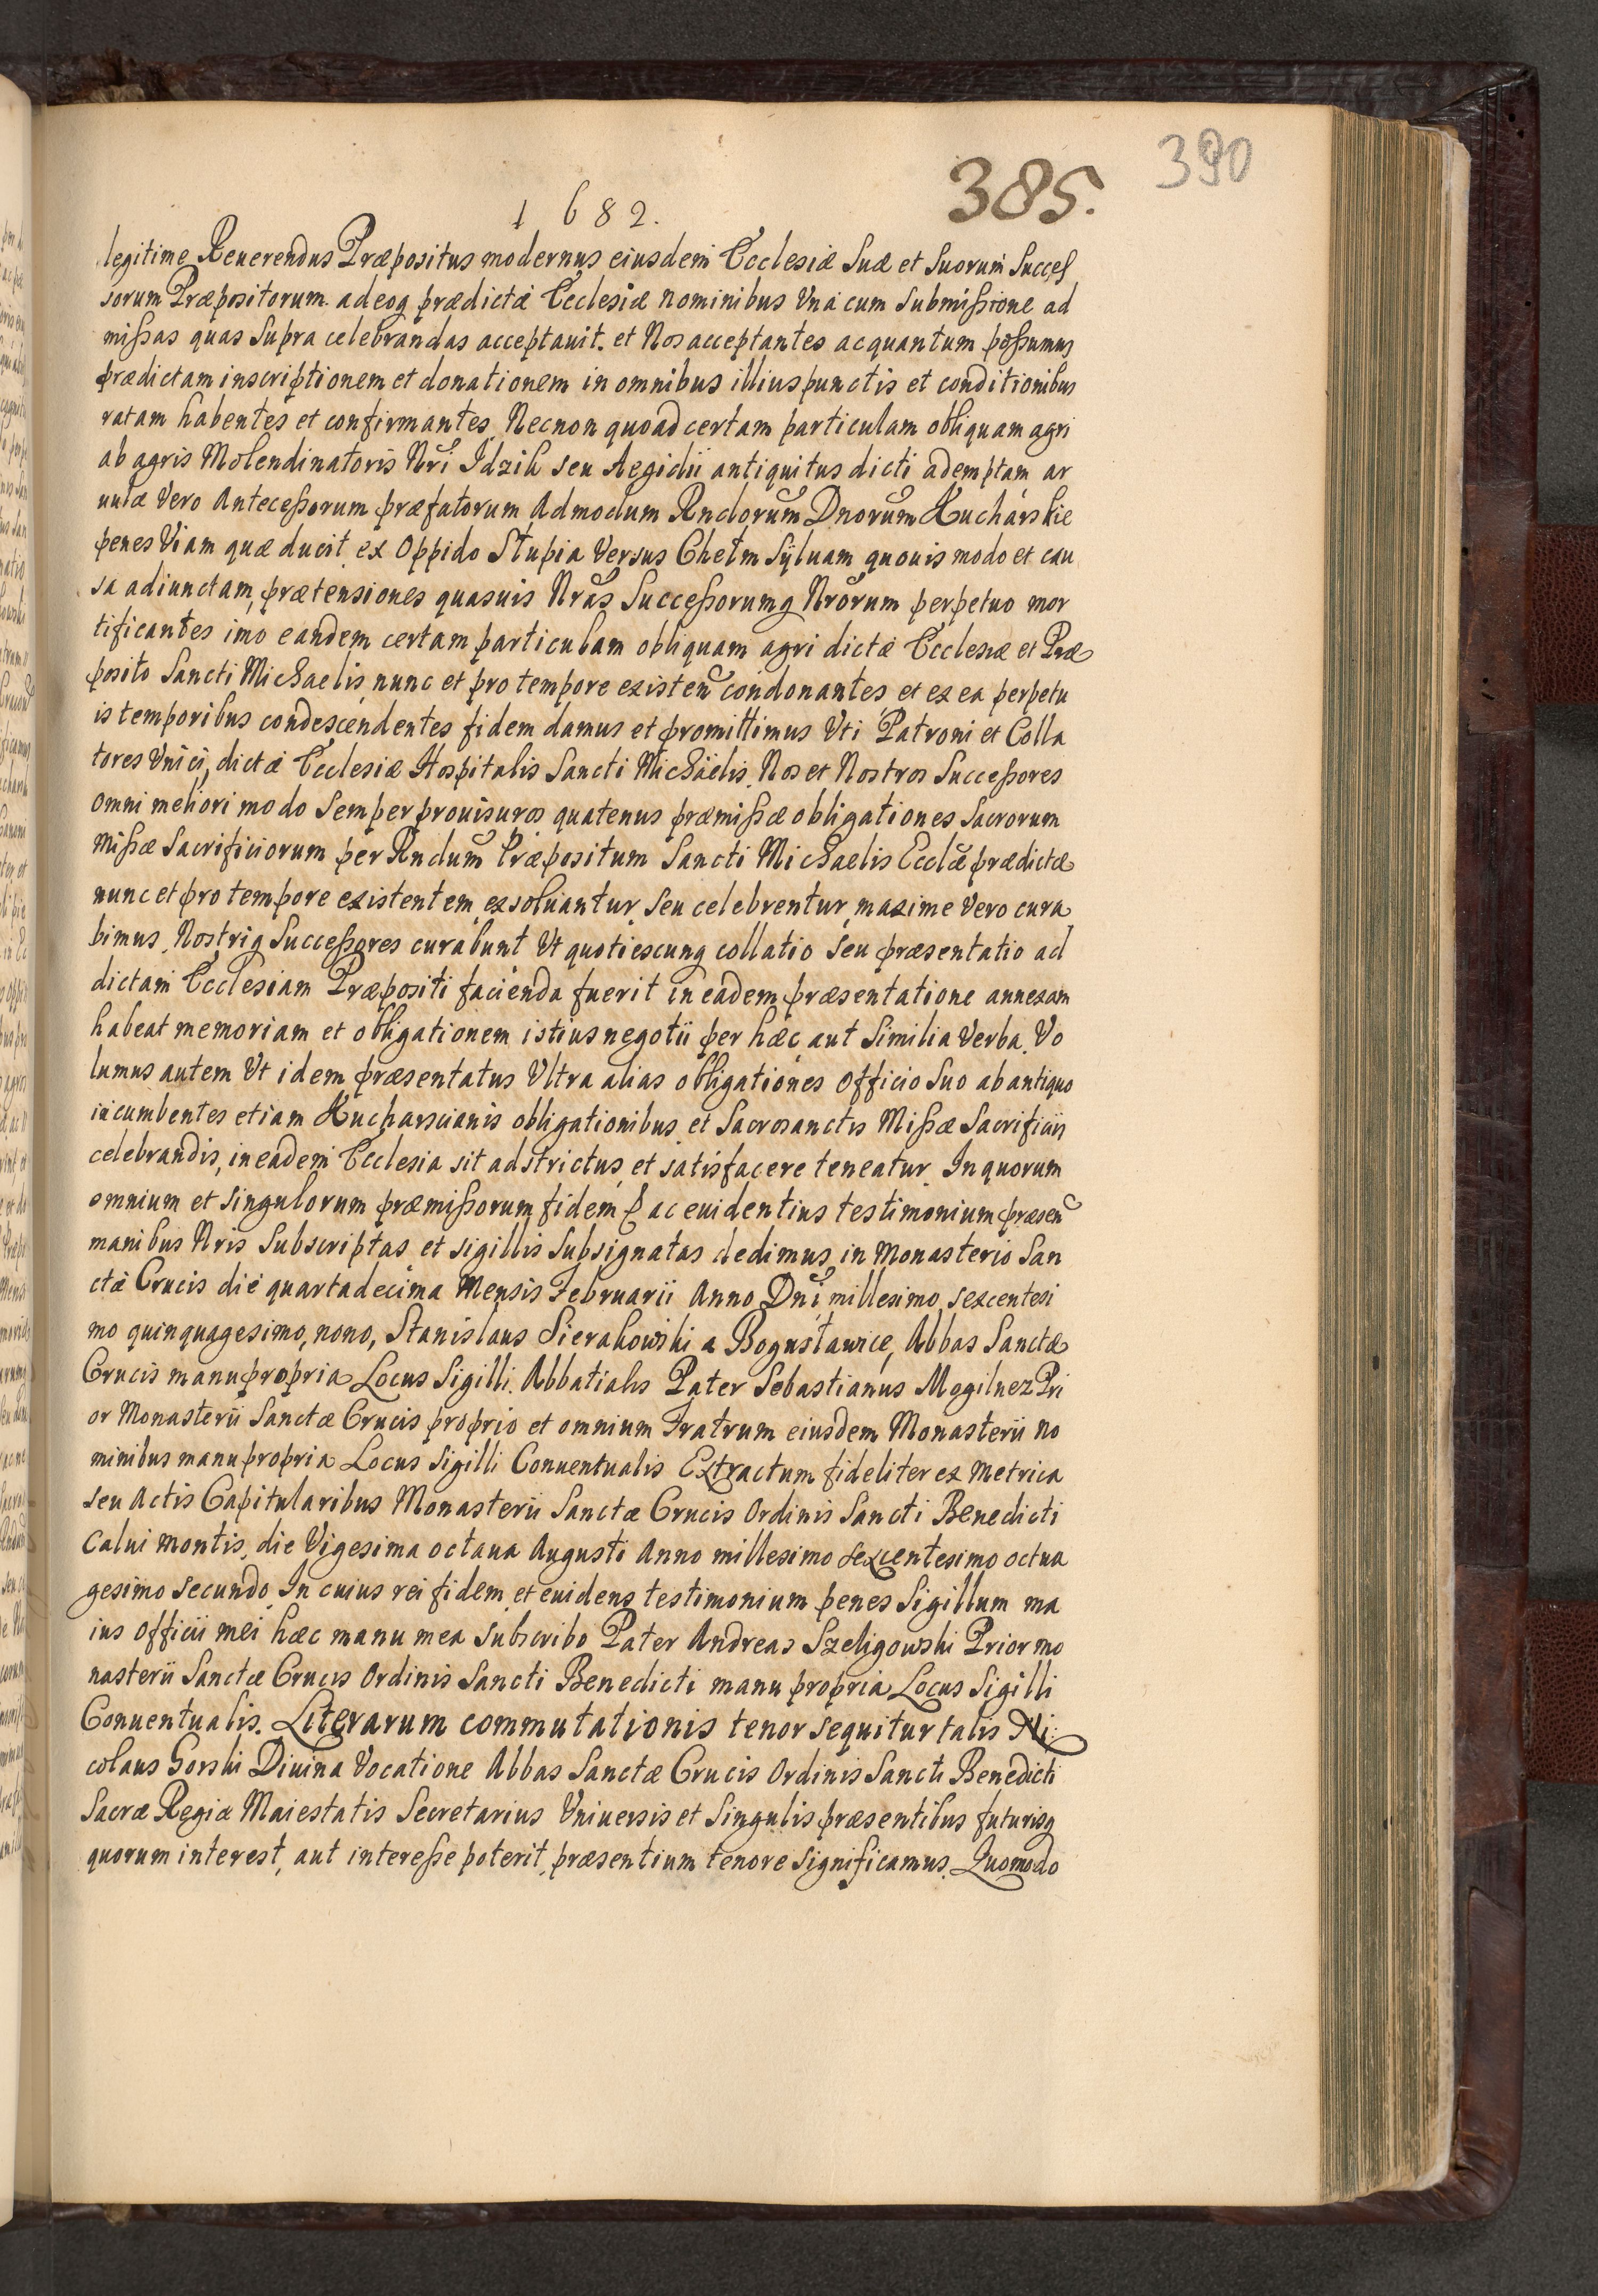 390
385.
1682.
legitime Reuerendus Præpositus modernus eiusdem Ecclesiæ Suæ et Suorum Succes
sorum Præpositorum adeoq prædictæ Ecclesiæ nominibus Vna cum Submißione ad
mißas quas Supra celebrandas acceptauit. et Nos acceptantes ac quantum poßumus
prædictam inscriptionem et donationem in omnibus illius punctis et conditionibus
ratam habentes et confirmantes Necnon quoad certam particulam obliquam agri
ab agris Molendinatoris Nri Idzik seu Aegidii antiquitus dicti ademptam ar
uulæ Vero Anteceßorum præfatorum Admodum Rndorum Dnorum Kucharskie
penes Viam quæ ducit ex Oppido Słupia Versus Chełm Syluam quouis modo et cau
sa adiunctam, prætensiones quasuis Nras Succeßorumq Nrorum perpetuo mor
tificantes imo eandem certam particulam obliquam agri dictæ Ecclesiæ et Præ
posito Sancti Michaelis nunc et pro tempore existen condonantes, et ex ea perpetu
is temporibus condescendentes fidem damus et promittimus Vti Patroni et Colla
tores Vnici, dictæ Ecclesiæ Hospitalis Sancti Michaelis. Nos et Nostros Succeßores
omni meliori modo Semper prouisuros quatenus præmißæ obligationes Sacrorum
Mißæ Sacrificiorum per Rndum Præpositum Sancti Michaelis Ecclæ prædictæ
nunc et pro tempore existentem exsoluantur Seu celebrentur, maxime Vero cura
bimus, Nostriq Succeßores curabunt Vt quotiescunq collatio Seu præsentatio ad
dictam Ecclesiam Præpositi facienda fuerit in eadem præsentatione annexam
habeat memoriam et obligationem istius negotii per hæc aut Similia Verba. Vo
lumus autem Vt idem præsentatus Vltra alias obligationes officio Suo ab antiquo
incumbentes etiam Kucharscianis obligationibus et Sacrosanctis Mißæ Sacrificiis
celebrandis, in eadem Ecclesia sit adstrictus, et satisfacere teneatur. In quorum
omnium et singulorum præmißorum fidem ac euidentius testimonium præsen
manibus Nris Subscriptas et sigillis Subsignatas dedimus, in Monasterio San
ctæ Crucis die quartadecima Mensis Februarii Anno Dni millesimo sexcentesi
mo quinquagesimo, nono, Stanislaus Sierakowski a Bogusławice, Abbas Sanctæ
Crucis manu propria Locus Sigilli. Abbatialis Pater Sebastianus Mogilnez Pri
or Monasterii Sanctæ Crucis proprio et omnium Fratrum eiusdem Monasterii no
minibus manu propria Locus Sigilli Conuentualis Extractum fideliter ex Metrica
seu Actis Capitularibus Monasterii Sanctæ Crucis Ordinis Sancti Benedicti
Calui montis, die Vigesima octaua Augusti Anno millesimo sexcentesimo octua
gesimo Secundo. In cuius rei fidem et euidens testimonium penes Sigillum ma
ius officii mei hæc manu mea Subscribo Pater Andreas Szeligowski Prior mo
nasterii Sanctæ Crucis Ordinis Sancti Benedicti manu propria Locus Sigilli
Conuentualis. Literarum commutationis tenor sequitur talis Ni:
colaus Gorski Diuina Vocatione Abbas Sanctæ Crucis Ordinis Sancti Benedicti
Sacræ Regiæ Maiestatis Secretarius Vniuersis et Singulis præsentibus futurisq
quorum interest, aut intereße poterit, præsentium tenore significamus. Quomodo